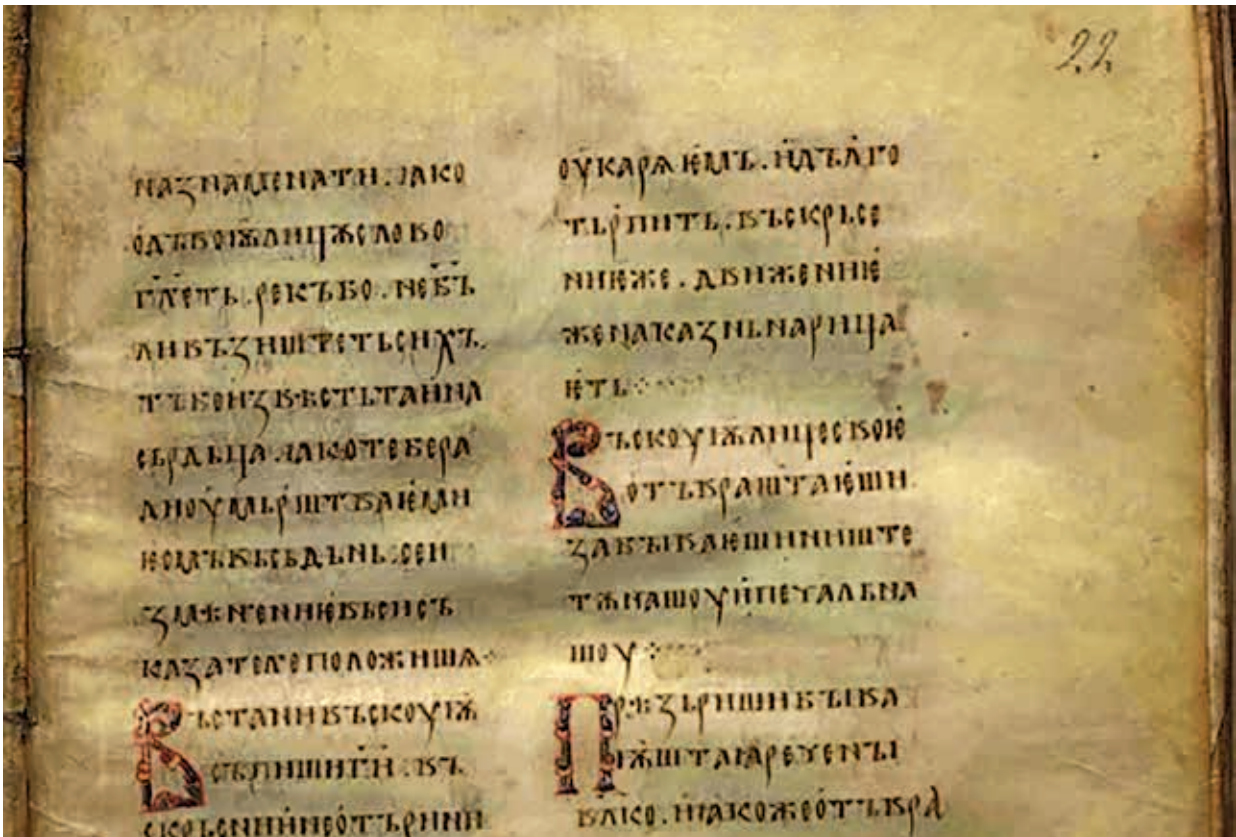 22
назнаменати. ꙗко
о дъвоѭ лицѫ слово
г҃леть. рекъ бо. не б҃ъ
ли въꙁиштеть сихъ.
тъ бо иꙁвѣсть таина
сьрдьца. ꙗко тебе ра
ди оумьрштвлѥми
ѥсмъ вьсь дьнь. сеи
ꙁмѣнениѥ вьси съ
каꙁателе положишѧ
Въстани въскоуѭ
съпиши г҃и. въ
скрьсни и не отърини
оукарꙗѥмъ. и дълго
тьрпить. въскрьсе
ниѥ же. движениѥ
же на каꙁнь нарица
ѥть
Въскоуѭ лице своѥ
отъвраштаѥши
ꙁабываѥши ниште
тѫ нашоу и печаль на
шоу
Прѣꙁьриши бъıва
ѭштаꙗ реченъı
ꙗко. и ꙗкоже отъвра